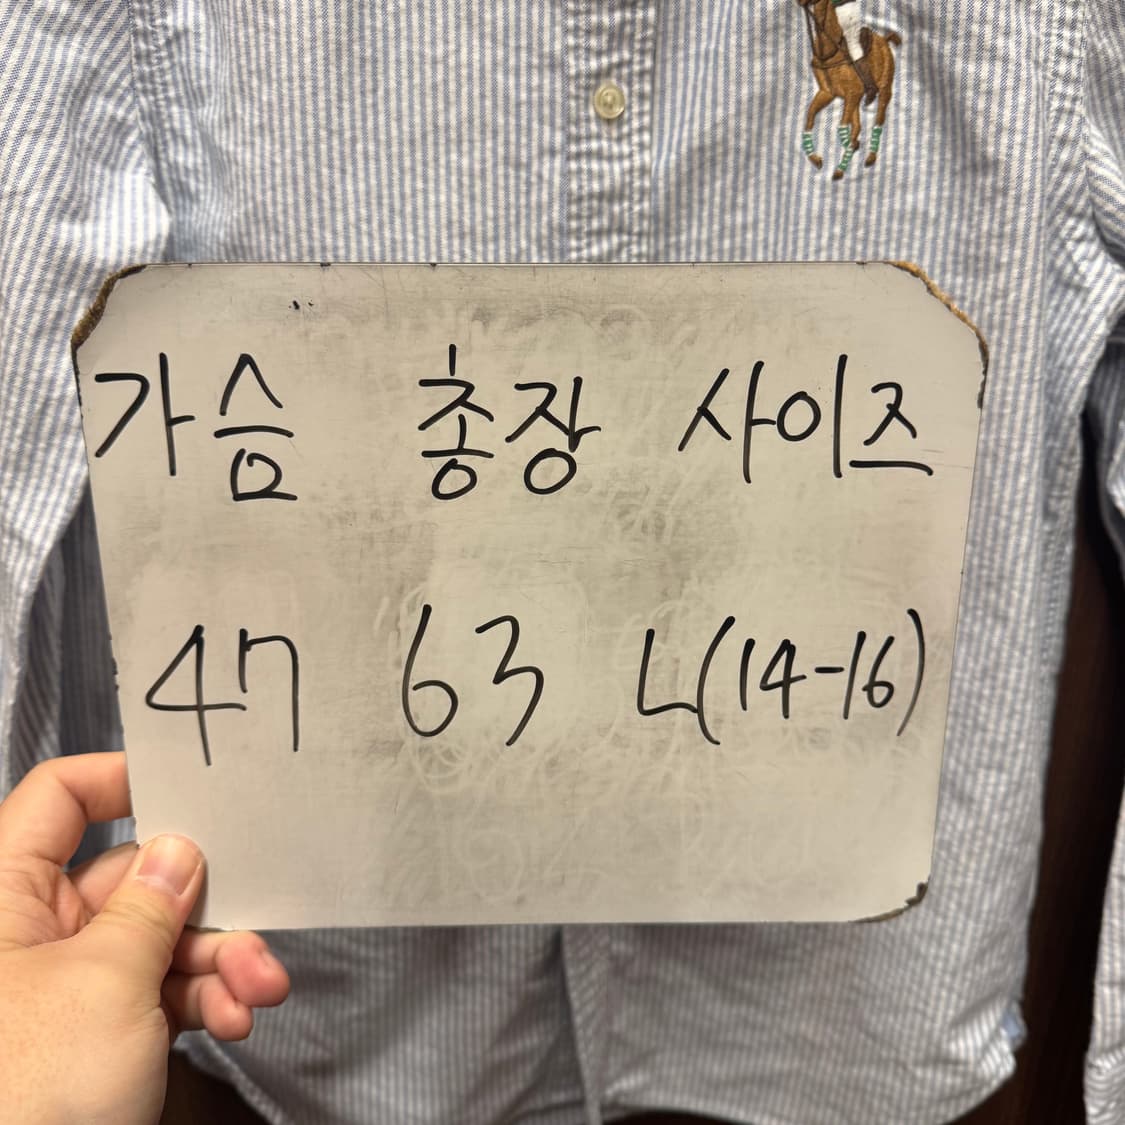 가슴 총장 사이즈
47 63 L(14-16)